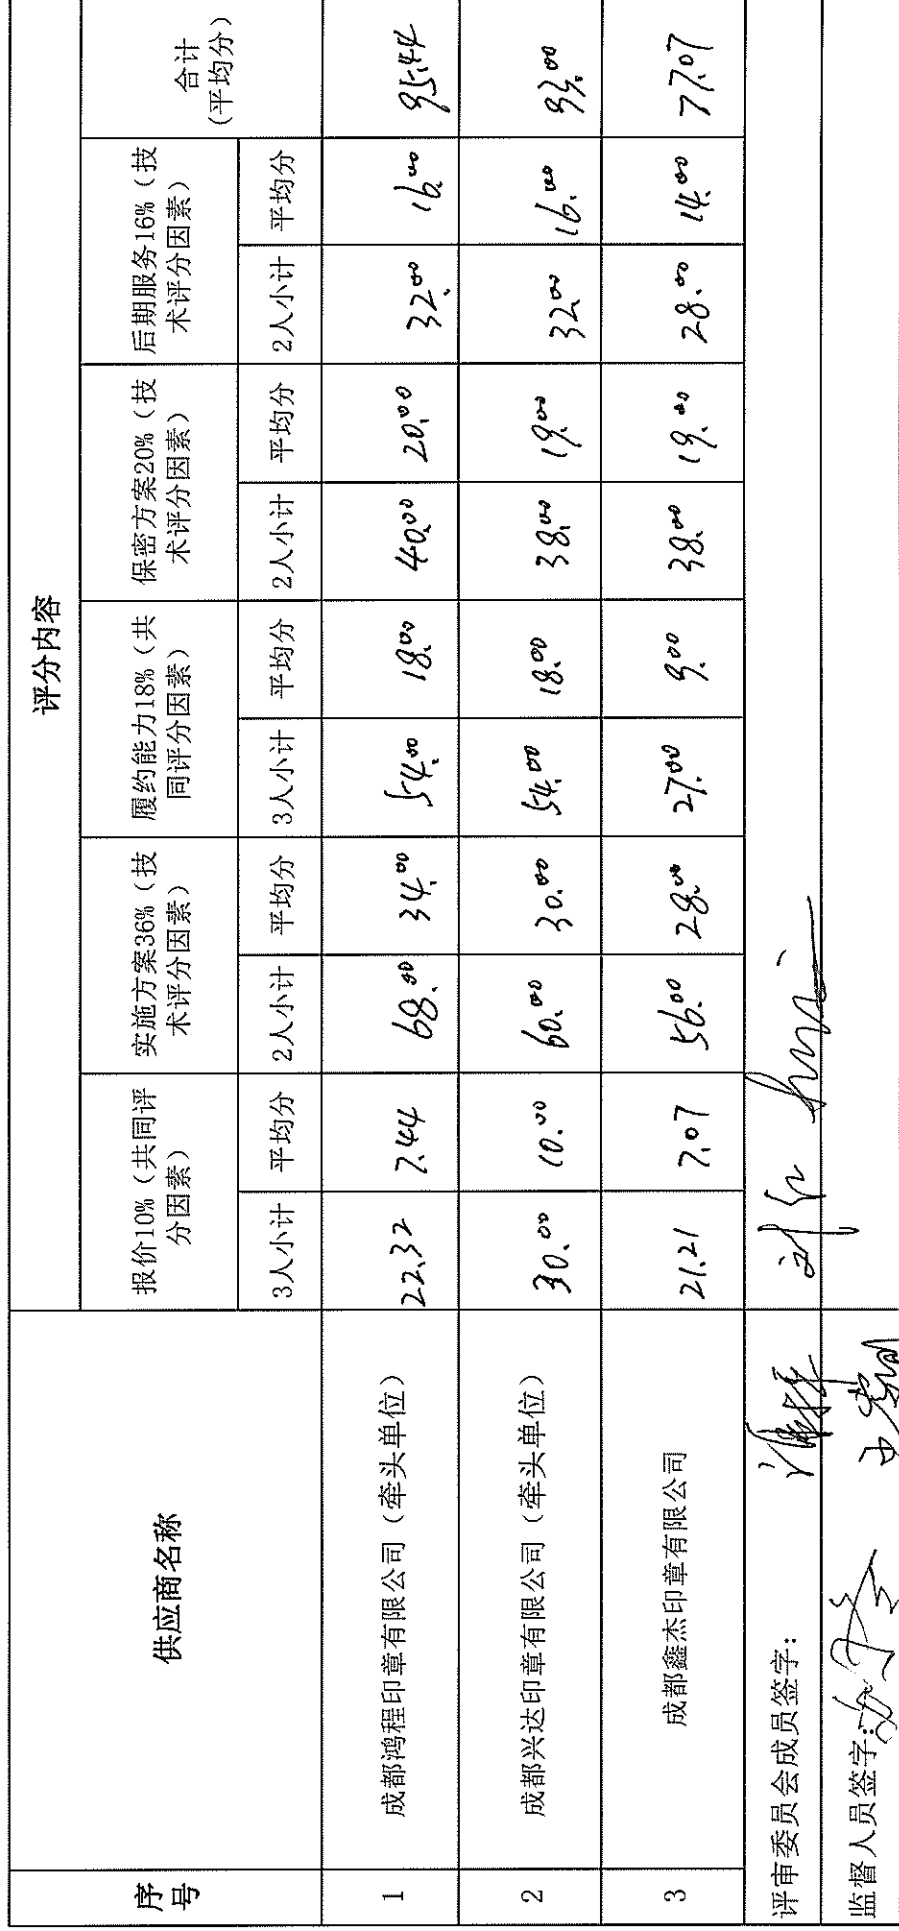 序号 供应商名称 评分内容
报价10%（共同评分因素） 实施方案36%（技术评分因素） 履约能力18%（共同评分因素） 保密方案20%（技术评分因素） 后期服务16%（技术评分因素） 合计(平均分)
3人小计 平均分 2人小计 平均分 3人小计 平均分 2人小计 平均分 2人小计 平均分
1 成都鸿程印章有限公司（牵头单位） 22.32 7.44 68.00 34.00 54.00 18.00 40.00 20.00 32.00 16.00 95.44
2 成都兴达印章有限公司（牵头单位） 30.00 10.00 60.00 30.00 54.00 18.00 38.00 19.00 32.00 16.00 93.00
3 成都鑫杰印章有限公司 21.21 7.07 56.00 28.00 27.00 9.00 38.00 19.00 28.00 14.00 77.07
评审委员会成员签字：
监督人员签字：